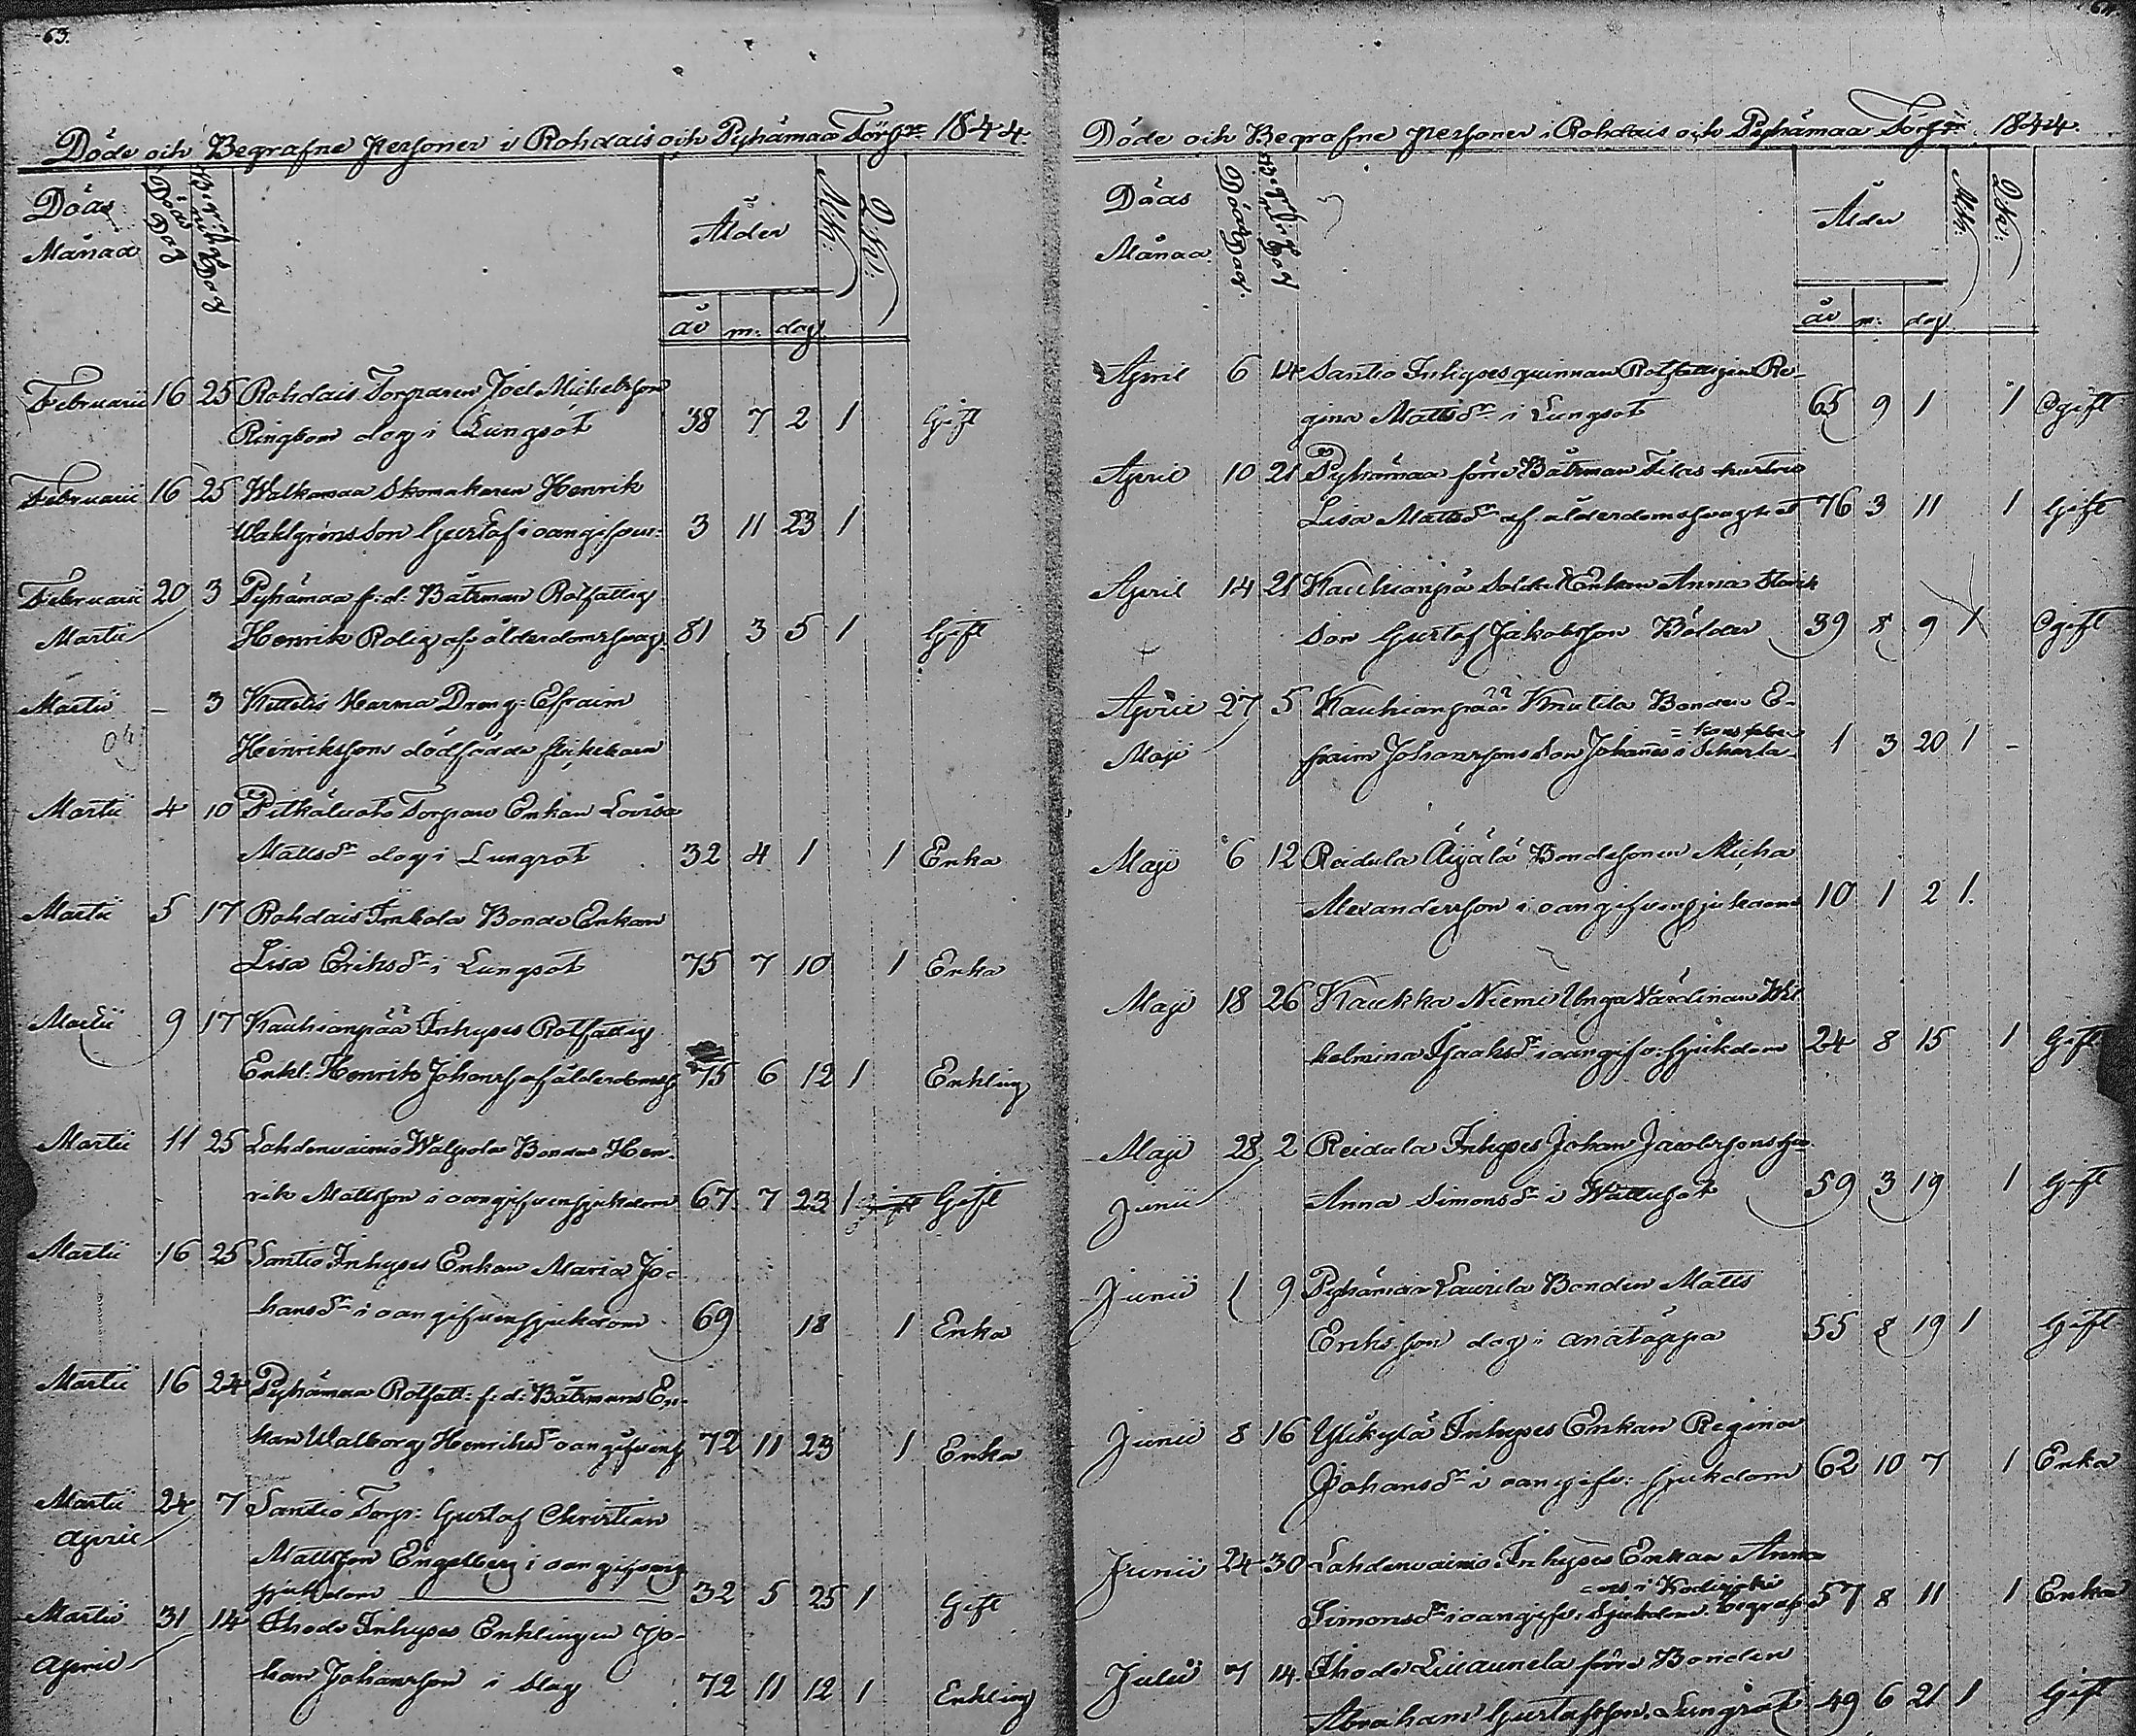 63.
Döde och Begrafne personer i Rohdais och Pyhämaa Förs:r 1844.
Döds Månad
Döds Dag
Begrafnings Dag
Ålder
år m: dag.
M:K:
Q:K:
Februarii 16 25 Rohdais Torparen Joel Michelsson
Ringbom dog i Lungsot 38 7 2 1 Gift
Februarii 16 25 Walkamaa Skomakaren Henrik
Wahlgréns Son Gustaf i oangifven 3 11 23 1
Februarii 20 3 Pyhämaa f:d: Båtsman Rotfattig
Martii Henrik Rolig af ålderdomssvag: 81 3 5 1 Gift
Martii – 3 Kittilis Marma Dreng: Efraim
Heinrikssons dödfödde flickebarn
Martii 4 10 Pitkäluoto Torpare Enkan Lovisa
Mattsd:r dog i Lungsot 32 4 1 1 Enka
Martii 5 17 Rohdais Bonde Enkan
Lisa Eriksd:r i Lungsot 75 7 10 1 Enka
Martii 9 17 Kauhianpää Inhyses Rotfattig
Enkl: Henrik Johanss: af ålderdoms 75 6 12 1 Enkling
Martii 11 25 Lahdenvainio Walpola Bonden Hen-
rik Mattsson i oangifven sjukdom 67 7 23 1 Gift
Martii 16 25 Santio Inhyses Enkan Maria Jo-
hansd:r i oangifven sjukdom 69 18 1 Enka
Martii 16 24 Pyhämaa Rotfatt: f:d: Båtsmans En-
kan Walborg Henriksd:r oangifven 72 11 23 1 Enka
Martii 24 7 Santio Torp: Gustaf Christian
April Mattsson Engelberg i oangifven
sjukdom 32 5 25 1 Gift
Martii 31 14 Ihode Inhyses Enklingen Jo-
April han Johansson i Slag 72 11 12 1 Enkling
64.
Döde och Begrafne personer i Rohdais och Pyhämaa Förs:r 1844.
Döds Månad
Döds Dag.
Begrafnings Dag
Ålder
år m: dag.
M:K:
Q:K:
April 6 14 Santio Inhyses quinnan Rotfattigen Re-
gina Mattsd:r i Lungsot 65 9 1 1 Ogift
April 10 21 Pyhämaa förre Båtsman Filas hustru
Lisa Mattsd:r af ålderdomssvaghet 76 3 11 1 Gift
April 14 21 Kauhianpä Sold: Enkan Anna
Son Gustaf Jakobsson Bölder 39 8 9 1 Ogift
April 27 5 Kauhianpää Knutila Bonden E-
Maji fraim Johanssons Son Johannes i Scharla-
kans feber 1 3 20 1 –
Maji 6 12 Reidula Äijälä Bondesonen Micha
Alexandersson i oangifven sjukdom 10 1 2 1.
Maji 18 26 Kaukka Niemi Unga Värdinnan Wil-
helmina Isaksd:r i oangifv: sjukdom 24 8 15 1 Gift
Maji 28 2 Reidula Inhyses Johan Jacobssons hu:
Junii Anna Simonsd:r i Wattusot 59 3 19 1 Gift
Junii 1 9 Pyhämaa Laurila Bonden Matts
Eriksson dog i andtäppa 55 8 19 1 Gift
Junii 8 16 Ylikylä Inhyses Enkan Regina
Johansd:r i oangifv: sjukdom 62 10 7 1 Enka
Junii 24 30 Lahdenvainio Inhyses Enkan Anna
Simonsd:r i oangifv: Sjukdom. begraf-
ves i Kodisjoki 57 8 11 1 Enka
Julii 7 14. Ihode Liuaunela förre Bonden
Abraham Gustafsson. Lungsot 49 6 21 1 Gift